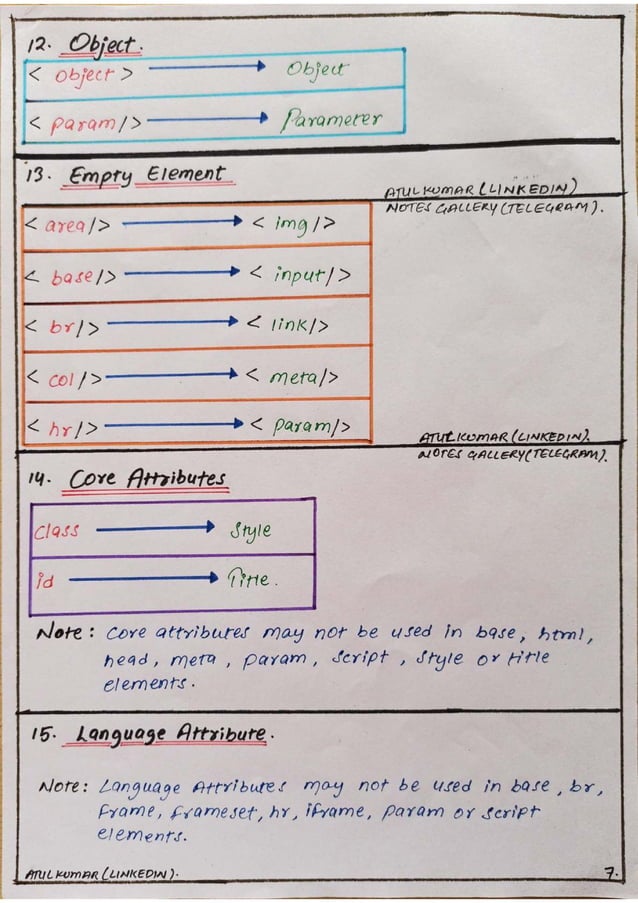 12. Object.
< object > → Object
< param/> → Parameter
13. Empty Element
ATUL KUMAR (LINKEDIN)
NOTES GALLERY (TELEGRAM).
< area/> → < img/>
< base/> → < input/>
< br/> → < link/>
< col/> → < meta/>
< hr/> → < param/>
ATUL KUMAR (LINKEDIN).
NOTES GALLERY (TELEGRAM).
14. Core Attributes
class → Style
id → Title.
Note: Core attributes may not be used in base, html,
head, meta, param, script, style or title
elements.
15. Language Attribute.
Note: Language Attributes may not be used in base, br,
frame, frameset, hr, iframe, param or script
elements.
ATUL KUMAR (LINKEDIN).
7.